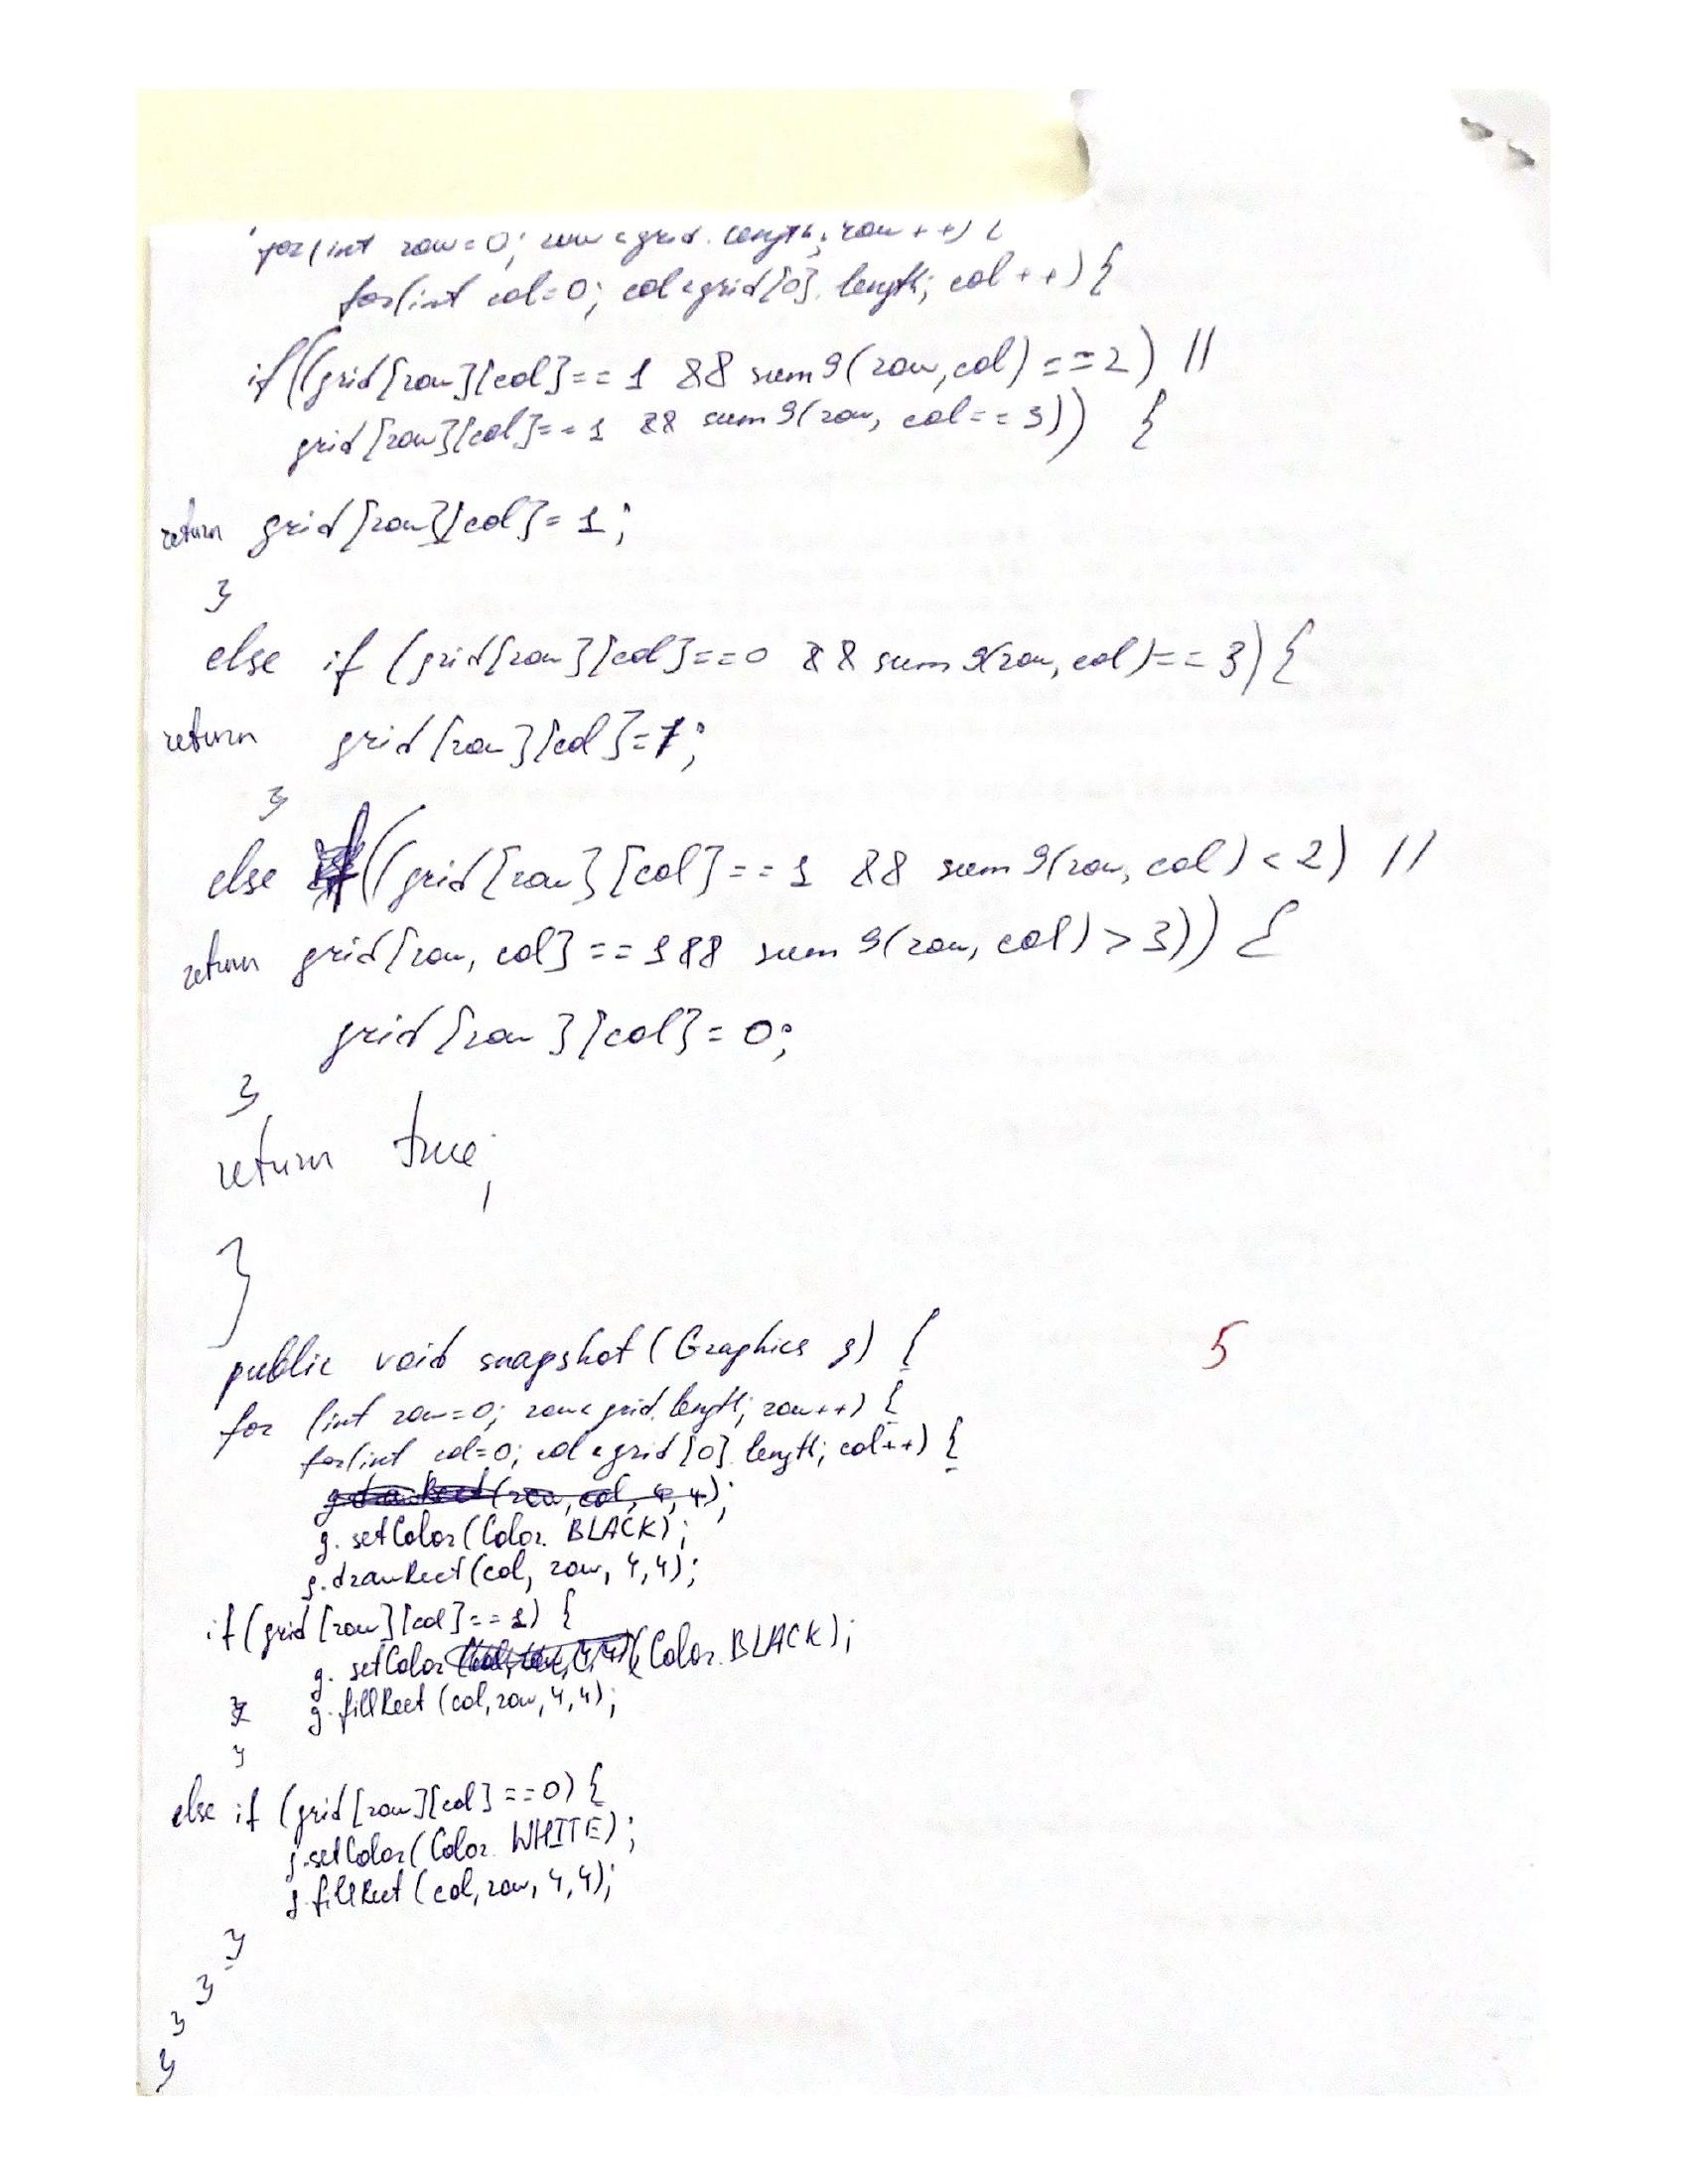 for(int row=0; row<grid.length; row++) {
for(int col=0; col<grid[0].length; col++) {
if((grid[row][col]==1 && sum9(row,col)==2) ||
grid[row][col]==1 && sum9(row, col==3)) {
return grid[row][col]=1;
}
else if (grid[row][col]==0 && sum9(row, col)==3) {
return grid[row][col]=1;
}
else if((grid[row][col]==1 && sum9(row, col)<2) ||
return grid[row, col]==1 && sum9(row, col)>3)) {
grid[row][col]=0;
}
return true;
}
public void snapshot(Graphics g) { 5
for (int row=0; row<grid.length; row++) {
for(int col=0; col<grid[0].length; col++) {
g.drawRect(row, col, 4, 4);
g.setColor(Color.BLACK);
g.drawRect(col, row, 4,4);
if(grid[row][col]==1) {
g.setColor (Color.BLACK);
} g.fillRect (col,row,4,4);
}
else if (grid[row][col]==0) {
g.setColor(Color.WHITE);
g.fillRect (col,row,4,4);
}
}
}
}